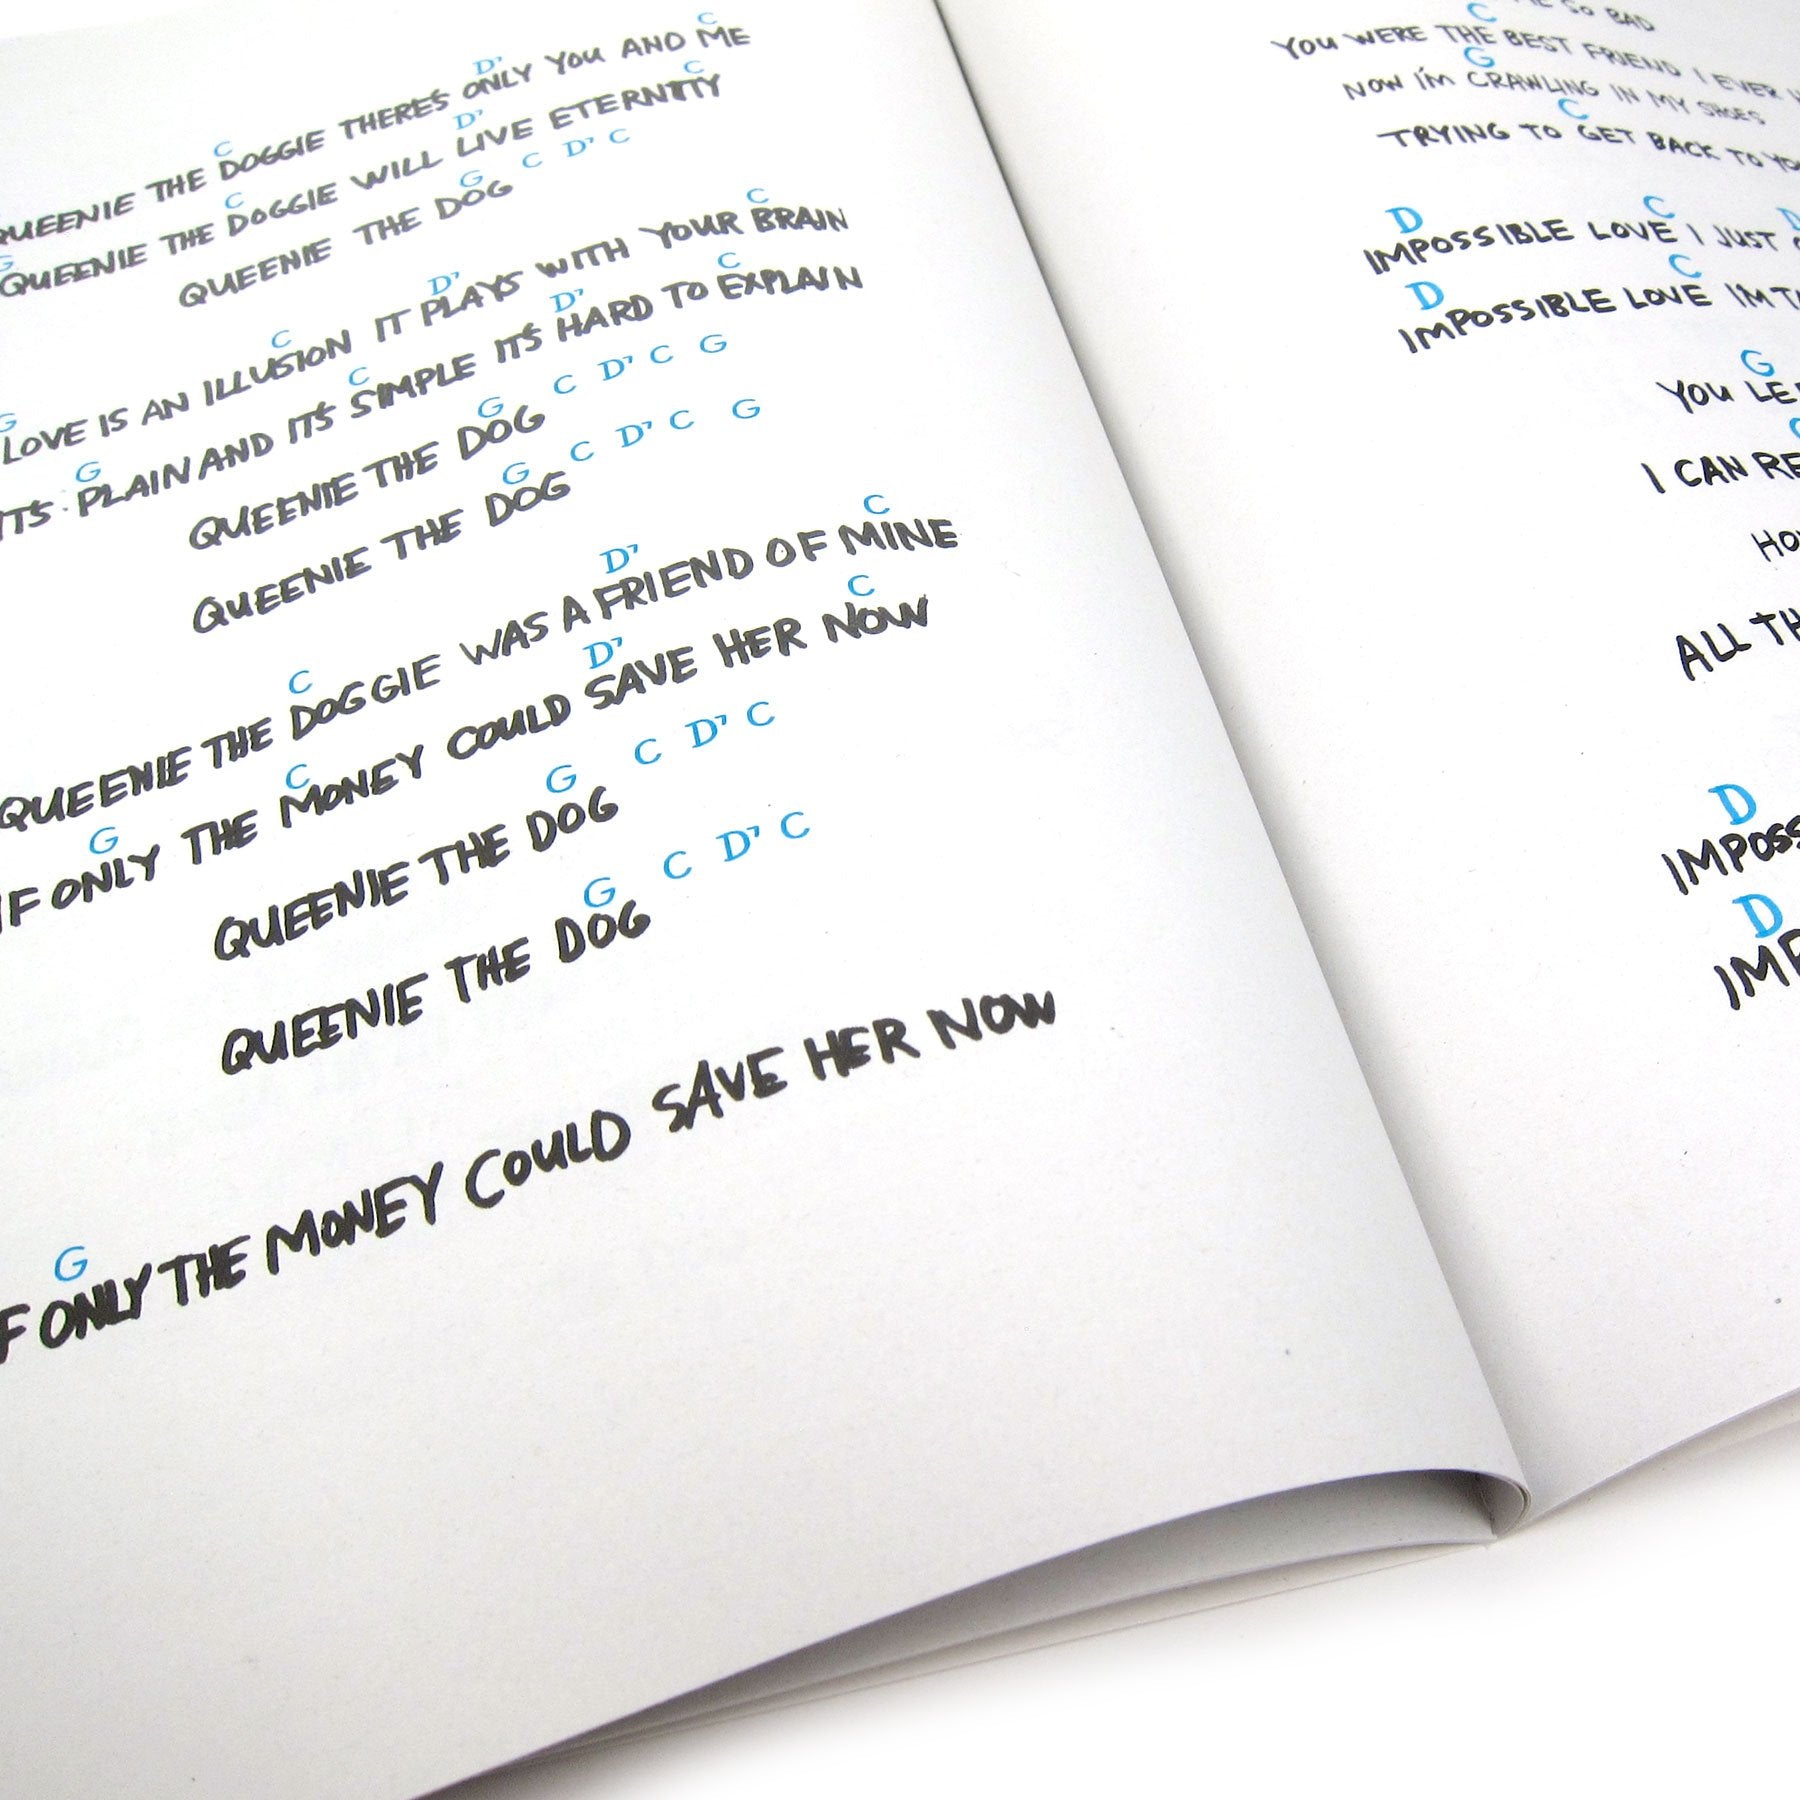 C D7 C
QUEENIE THE DOGGIE THERE'S ONLY YOU AND ME
G C D7 C
QUEENIE THE DOGGIE WILL LIVE ETERNITY
G C D7 C
QUEENIE THE DOG
G C D7 C
LOVE IS AN ILLUSION IT PLAYS WITH YOUR BRAIN
G C D7 C
IT'S PLAIN AND IT'S SIMPLE IT'S HARD TO EXPLAIN
G C D7 C G
QUEENIE THE DOG
G C D7 C G
QUEENIE THE DOG
C D7 C
QUEENIE THE DOGGIE WAS A FRIEND OF MINE
G C D7 C
IF ONLY THE MONEY COULD SAVE HER NOW
G C D7 C
QUEENIE THE DOG
G C D7 C
QUEENIE THE DOG
G
IF ONLY THE MONEY COULD SAVE HER NOW
SO BAD
C
YOU WERE THE BEST FRIEND I EVER
G
NOW I'M CRAWLING IN MY SHOES
C
TRYING TO GET BACK TO
D C D
IMPOSSIBLE LOVE I JUST
D C
IMPOSSIBLE LOVE IM
G
YOU
I CAN
ALL
D
D